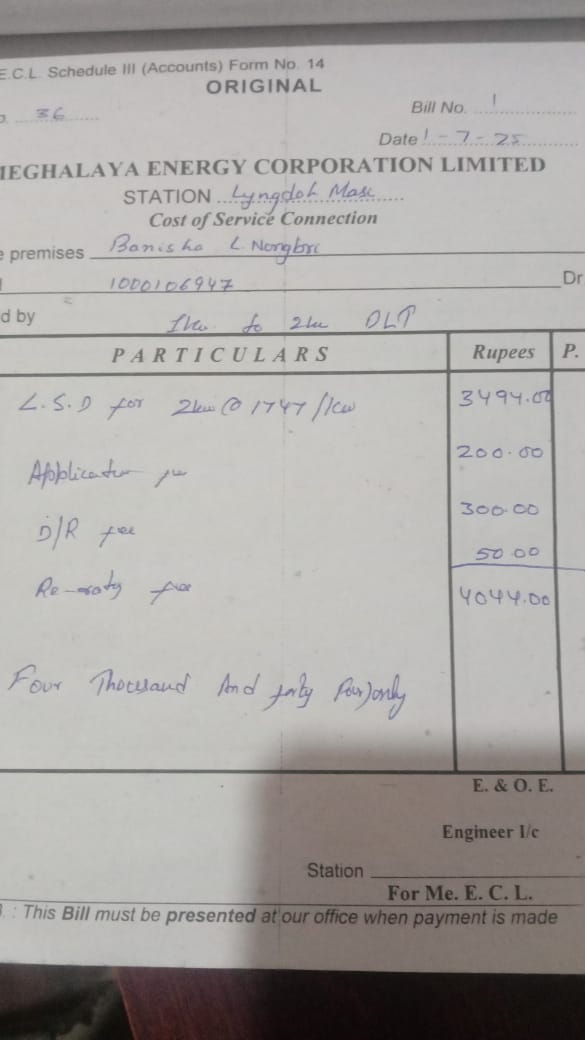 E.C.L. Schedule III (Accounts) Form No. 14
ORIGINAL
36 Bill No. 1
Date 1-7-25
MEGHALAYA ENERGY CORPORATION LIMITED
STATION Lyngdoh Mase
Cost of Service Connection
e premises Banisha L. Nongbri
1000106947 Dr
d by 1kw to 2kw DLT
PARTICULARS Rupees P.
L.S.D for 2kw @ 1747/kw 3494.00
Application fee 200.00
D/R fee 300.00
Re-rating fee 50.00
4044.00
Four Thousand And forty four) only
E. & O. E.
Engineer I/c
Station
For Me. E. C. L.
: This Bill must be presented at our office when payment is made